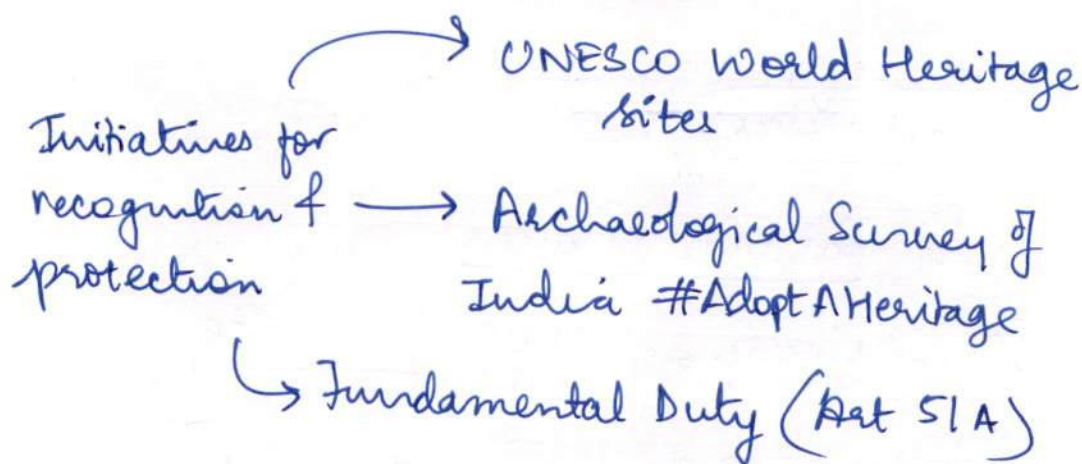 Initiatives for
recognition &
protection
UNESCO World Heritage
sites
Archaeological Survey of
India #AdoptAHeritage
Fundamental Duty (Art 51A)